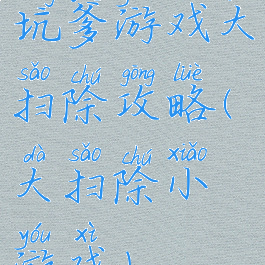 坑爹游戏大
sǎo chú gōng lüè
扫除攻略(
dà sǎo chú xiǎo
大扫除小
yóu xì
游戏)